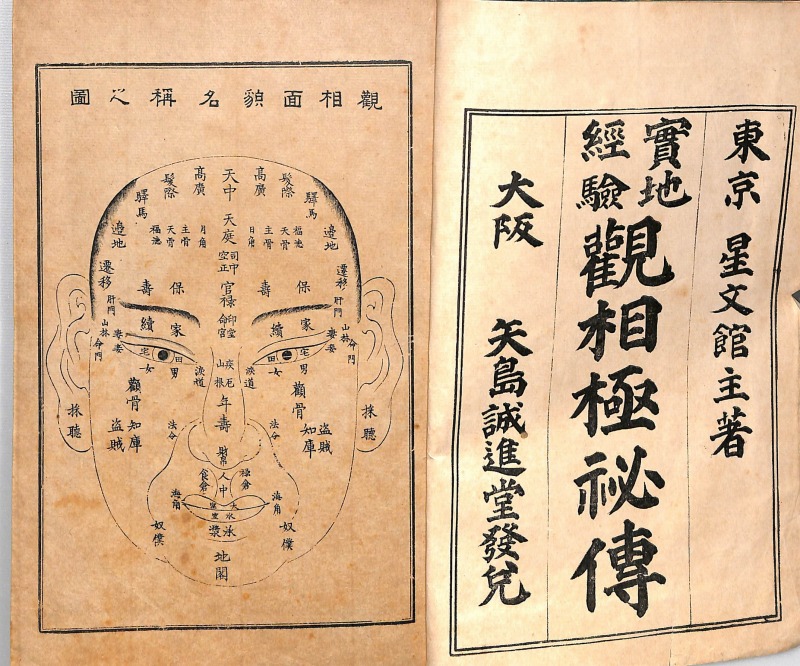 東京 星文館主著
實地
經驗
觀相極祕傳
大阪 矢島誠進堂發兌
觀相面貌名稱之圖
天中
天庭
司中
空正
官禄
印堂
命宮
疾厄
山根
年壽
人中
承漿
地閣
高廣
髮際
驛馬
福德
天骨
主骨
日角
邊地
遷移
保壽
家續
肝門
山林
命門
妻妾
田宅
男女
漁道
顴骨
知庫
盗賊
法令
採聽
祿倉
海角
奴僕
高廣
髮際
驛馬
月角
主骨
天骨
福德
邊地
遷移
保壽
家續
肝門
山林
命門
妻妾
田宅
男女
漁道
顴骨
知庫
盗賊
法令
採聽
食倉
海角
奴僕